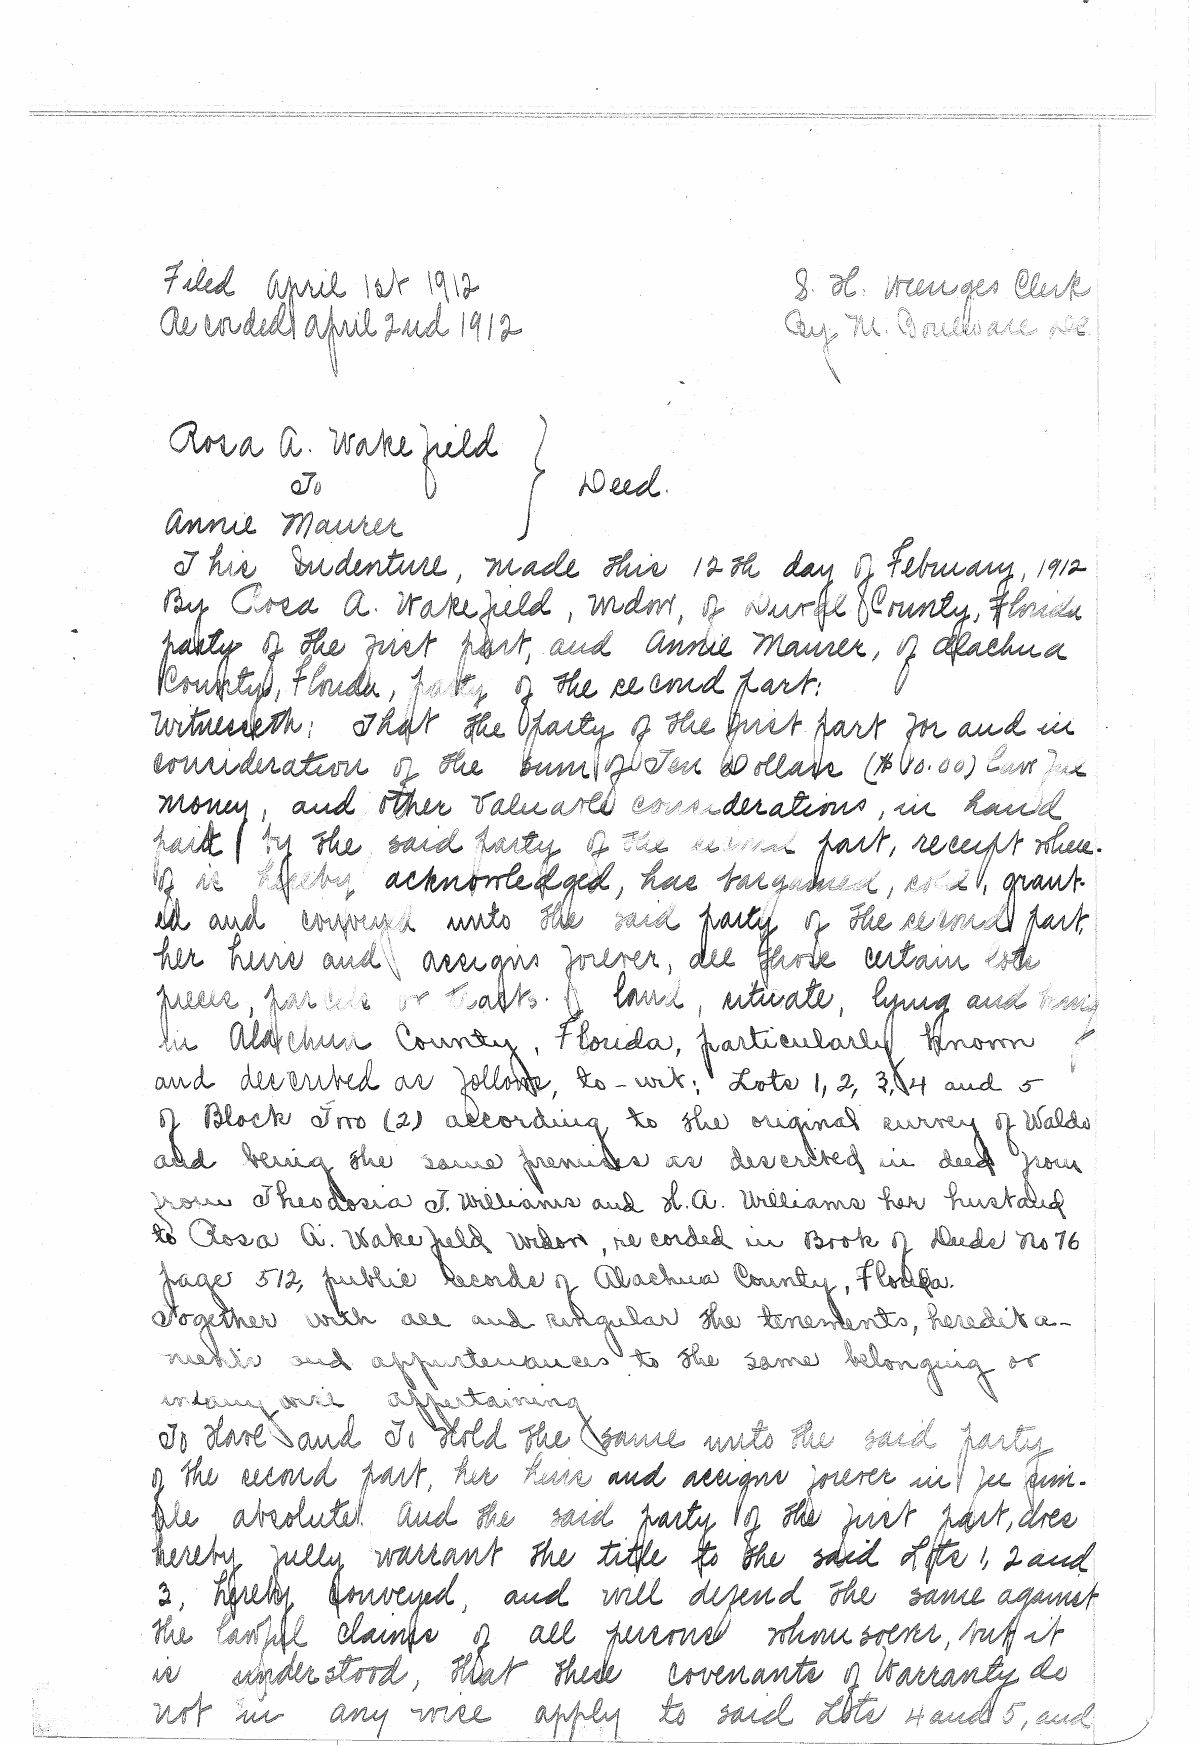 Filed April 1st 1912
S. H. Wienges Clerk
Recorded April 2nd 1912
By M. Boulware DC
Rosa A. Wakefield
To
Deed.
Annie Maurer
This Indenture, made this 12th day of February, 1912
By Rosa A. Wakefield, widow, of Duval County, Florida
party of the first part, and Annie Maurer, of Alachua
County, Florida, party of the second part:
Witnesseth: That the party of the first part for and in
consideration of the sum of Ten Dollars ($10.00) lawful
money, and other valuable considerations, in hand
paid by the said party of the second part, receipt where-
of is hereby acknowledged, has bargained, sold, grant-
ed and conveyed unto the said party of the second part,
her heirs and assigns forever, all those certain lots
pieces, parcels or tracts of land, situate, lying and being
in Alachua County, Florida, particularly known
and described as follows, to-wit: Lots 1, 2, 3, 4 and 5
of Block Two (2) according to the original survey of Waldo
and being the same premises as described in deed from
from Theodosia T. Williams and H. A. Williams her husband
to Rosa A. Wakefield widow, recorded in Book of Deeds No 76
page 512, public records of Alachua County, Florida.
Together with all and singular the tenements, heredita-
ments and appurtenances to the same belonging or
in any wise appertaining
To Have and To Hold the same unto the said party
of the second part, her heirs and assigns forever in fee sim-
ple absolute. And the said party of the first part, does
hereby fully warrant the title to the said Lots 1, 2 and
3, hereby conveyed, and will defend the same against
the lawful claims of all persons whomsoever, but it
is understood, that these covenants of Warranty do
not in any wise apply to said Lots 4 and 5, and